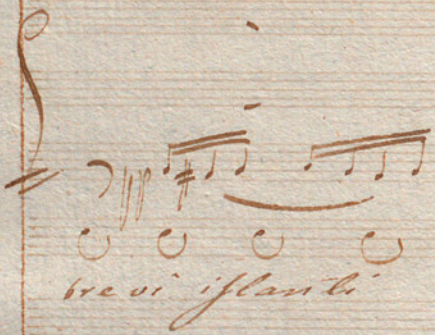 brevi iſtanti